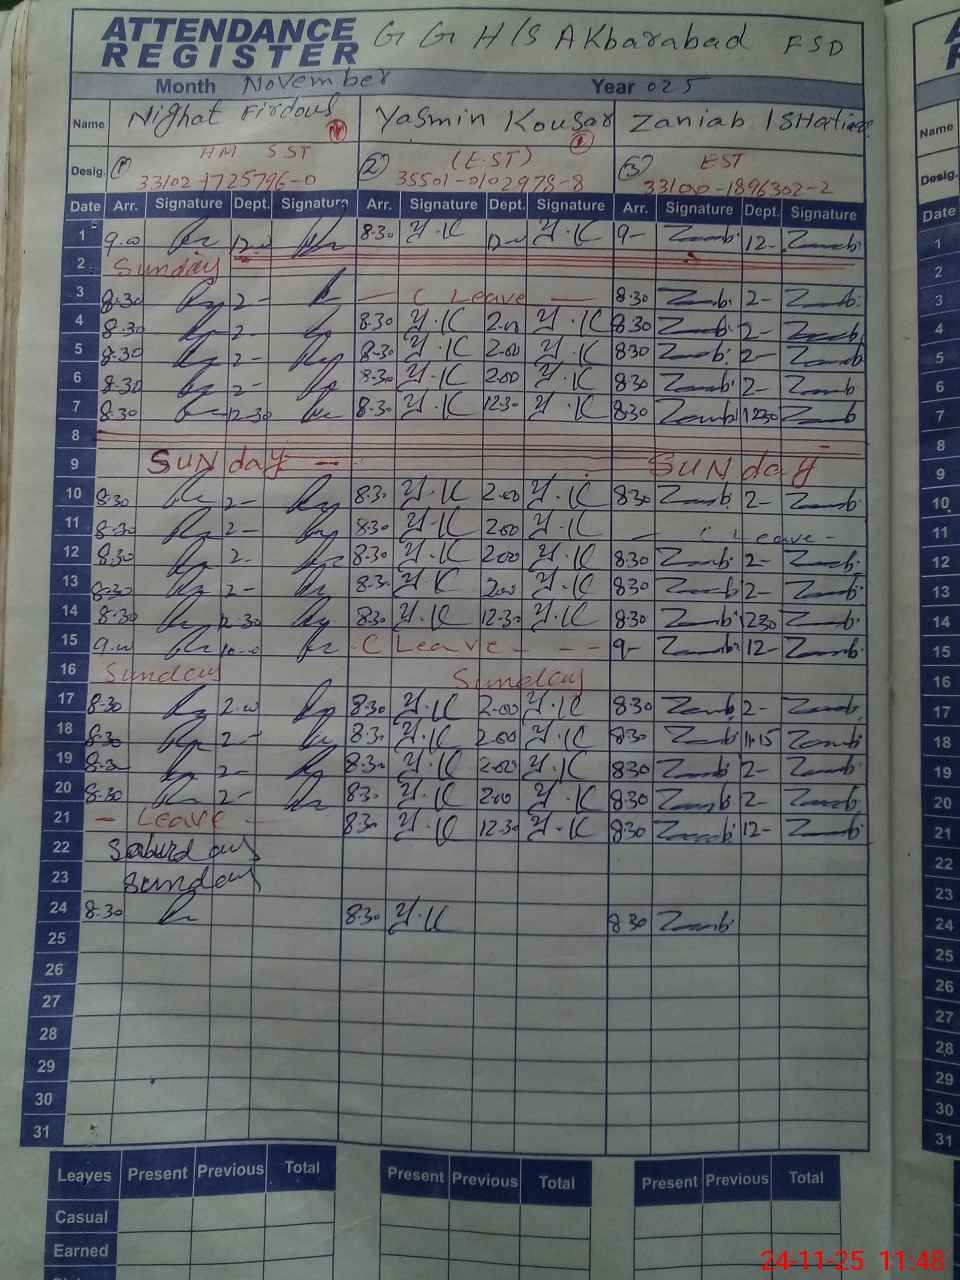 ATTENDANCE REGISTER G G H/S AKbarabad FSD
Month November Year 025
Name Nighat Firdous Yasmin Kousar Zaniab
Desig. 1 HM SST 2 (EST) 3 EST
33102-1725796-0 35501-0102978-8 33100-1896302-2
Date Arr. Signature Dept. Signature Arr. Signature Dept. Signature Arr. Signature Dept. Signature
1 9.00 12-00 8.30 Y.K 12-00 Y.K 9- Zainab 12- Zainab
2 Sunday
3 8.30 2- - C Leave - 8.30 Zainab 2- Zainab
4 8.30 2- 8.30 Y.K 2.00 Y.K 8.30 Zainab 2- Zainab
5 8.30 2- 8.30 Y.K 2.00 Y.K 830 Zainab 2- Zainab
6 8.30 2- 8.30 Y.K 2.00 Y.K 830 Zainab 2- Zainab
7 8.30 12-30 8.30 Y.K 12.30 Y.K 8.30 Zainab 1230 Zainab
8
9 SUNday - SUNday
10 8.30 2- 8.30 Y.K 2.00 Y.K 830 Zainab 2- Zainab
11 8.30 2- 8.30 Y.K 2.00 Y.K - Leave -
12 8.30 2- 8.30 Y.K 2.00 Y.K 8.30 Zainab 2- Zainab
13 8.30 2- 8.30 Y.K 2.00 Y.K 830 Zainab 2- Zainab
14 8.30 12-30 830 Y.K 12.30 Y.K 8.30 Zainab 1230 Zainab
15 9.00 - C Leave - - - 9- Zainab 12- Zainab
16 Sunday Sunday
17 8.30 2.00 8.30 Y.K 2.00 Y.K 8.30 Zainab 2- Zainab
18 8.30 2- 8.30 Y.K 2.00 Y.K 830 Zainab 11.15 Zainab
19 8.30 2- 8.30 Y.K 2.00 Y.K 830 Zainab 2- Zainab
20 8.30 2- 830 Y.K 2.00 Y.K 8.30 Zainab 2- Zainab
21 - Leave - 8.30 Y.K 12.30 Y.K 8.30 Zainab 12- Zainab
22 Saturday
23 Sunday
24 8.30 8.30 Y.K 8.30 Zainab
25
26
27
28
29
30
31
Leaves Present Previous Total Present Previous Total Present Previous Total
Casual
Earned
Name
Desig.
Date
1
2
3
4
5
6
7
8
9
10
11
12
13
14
15
16
17
18
19
20
21
22
23
24
25
26
27
28
29
30
31
24-11-25 11:48